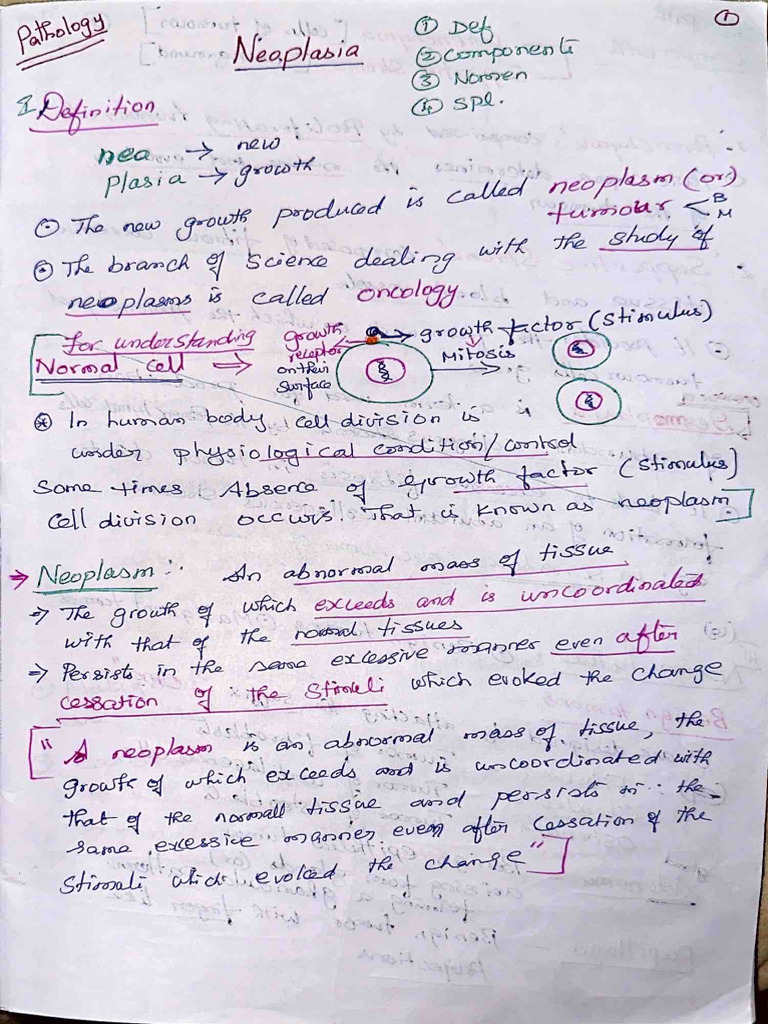 Pathology
①
Neoplasia
① Def
② Components
③ Nomen
④ Spl.
I. Definition
nea → new
Plasia → growth
⊙ The new growth produced is called neoplasm (or)
tumour < B
M
⊙ The branch of Science dealing with the study of
neoplasms is called oncology.
for understanding
Normal Cell ⇒
growth
receptor
on their
Surface
→ growth factor (Stimulus)
Mitosis
⊛ In human body cell division is
under physiological condition/control
Some times Absence of growth factor (Stimulus)
Cell division occurs. That is Known as neoplasm]
⇒ Neoplasm:- An abnormal mass of tissue
⇒ The growth of which exceeds and is uncoordinated
with that of the normal tissues
⇒ Persists in the same excessive manner even after
cessation of the Stimuli which evoked the change
["A neoplasm is an abnormal mass of tissue, the
growth of which exceeds and is uncoordinated with
that of the normall tissue and persists in the
same excessive manner even after Cessation of the
Stimuli which evoked the change"]